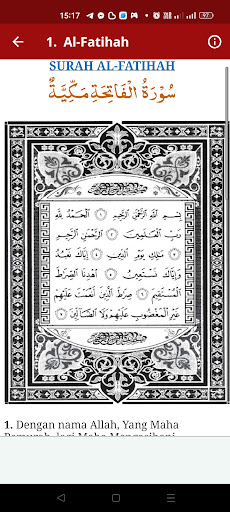 15:17
61%
1. Al-Fatihah
SURAH AL-FATIHAH
سُوْرَةُ الْفَاتِحَةِ مَكِّيَّةٌ
بِسْمِ اللَّهِ الرَّحْمَٰنِ الرَّحِيمِ ١ الْحَمْدُ لِلَّهِ
رَبِّ الْعَالَمِينَ ٢ الرَّحْمَٰنِ الرَّحِيمِ
٣ مَالِكِ يَوْمِ الدِّينِ ٤ إِيَّاكَ نَعْبُدُ
وَإِيَّاكَ نَسْتَعِينُ ٥ اهْدِنَا الصِّرَاطَ
الْمُسْتَقِيمَ ٦ صِرَاطَ الَّذِينَ أَنْعَمْتَ عَلَيْهِمْ
غَيْرِ الْمَغْضُوبِ عَلَيْهِمْ وَلَا الضَّالِّينَ ٧
1. Dengan nama Allah, Yang Maha
Pemurah, lagi Maha Mengasihani.